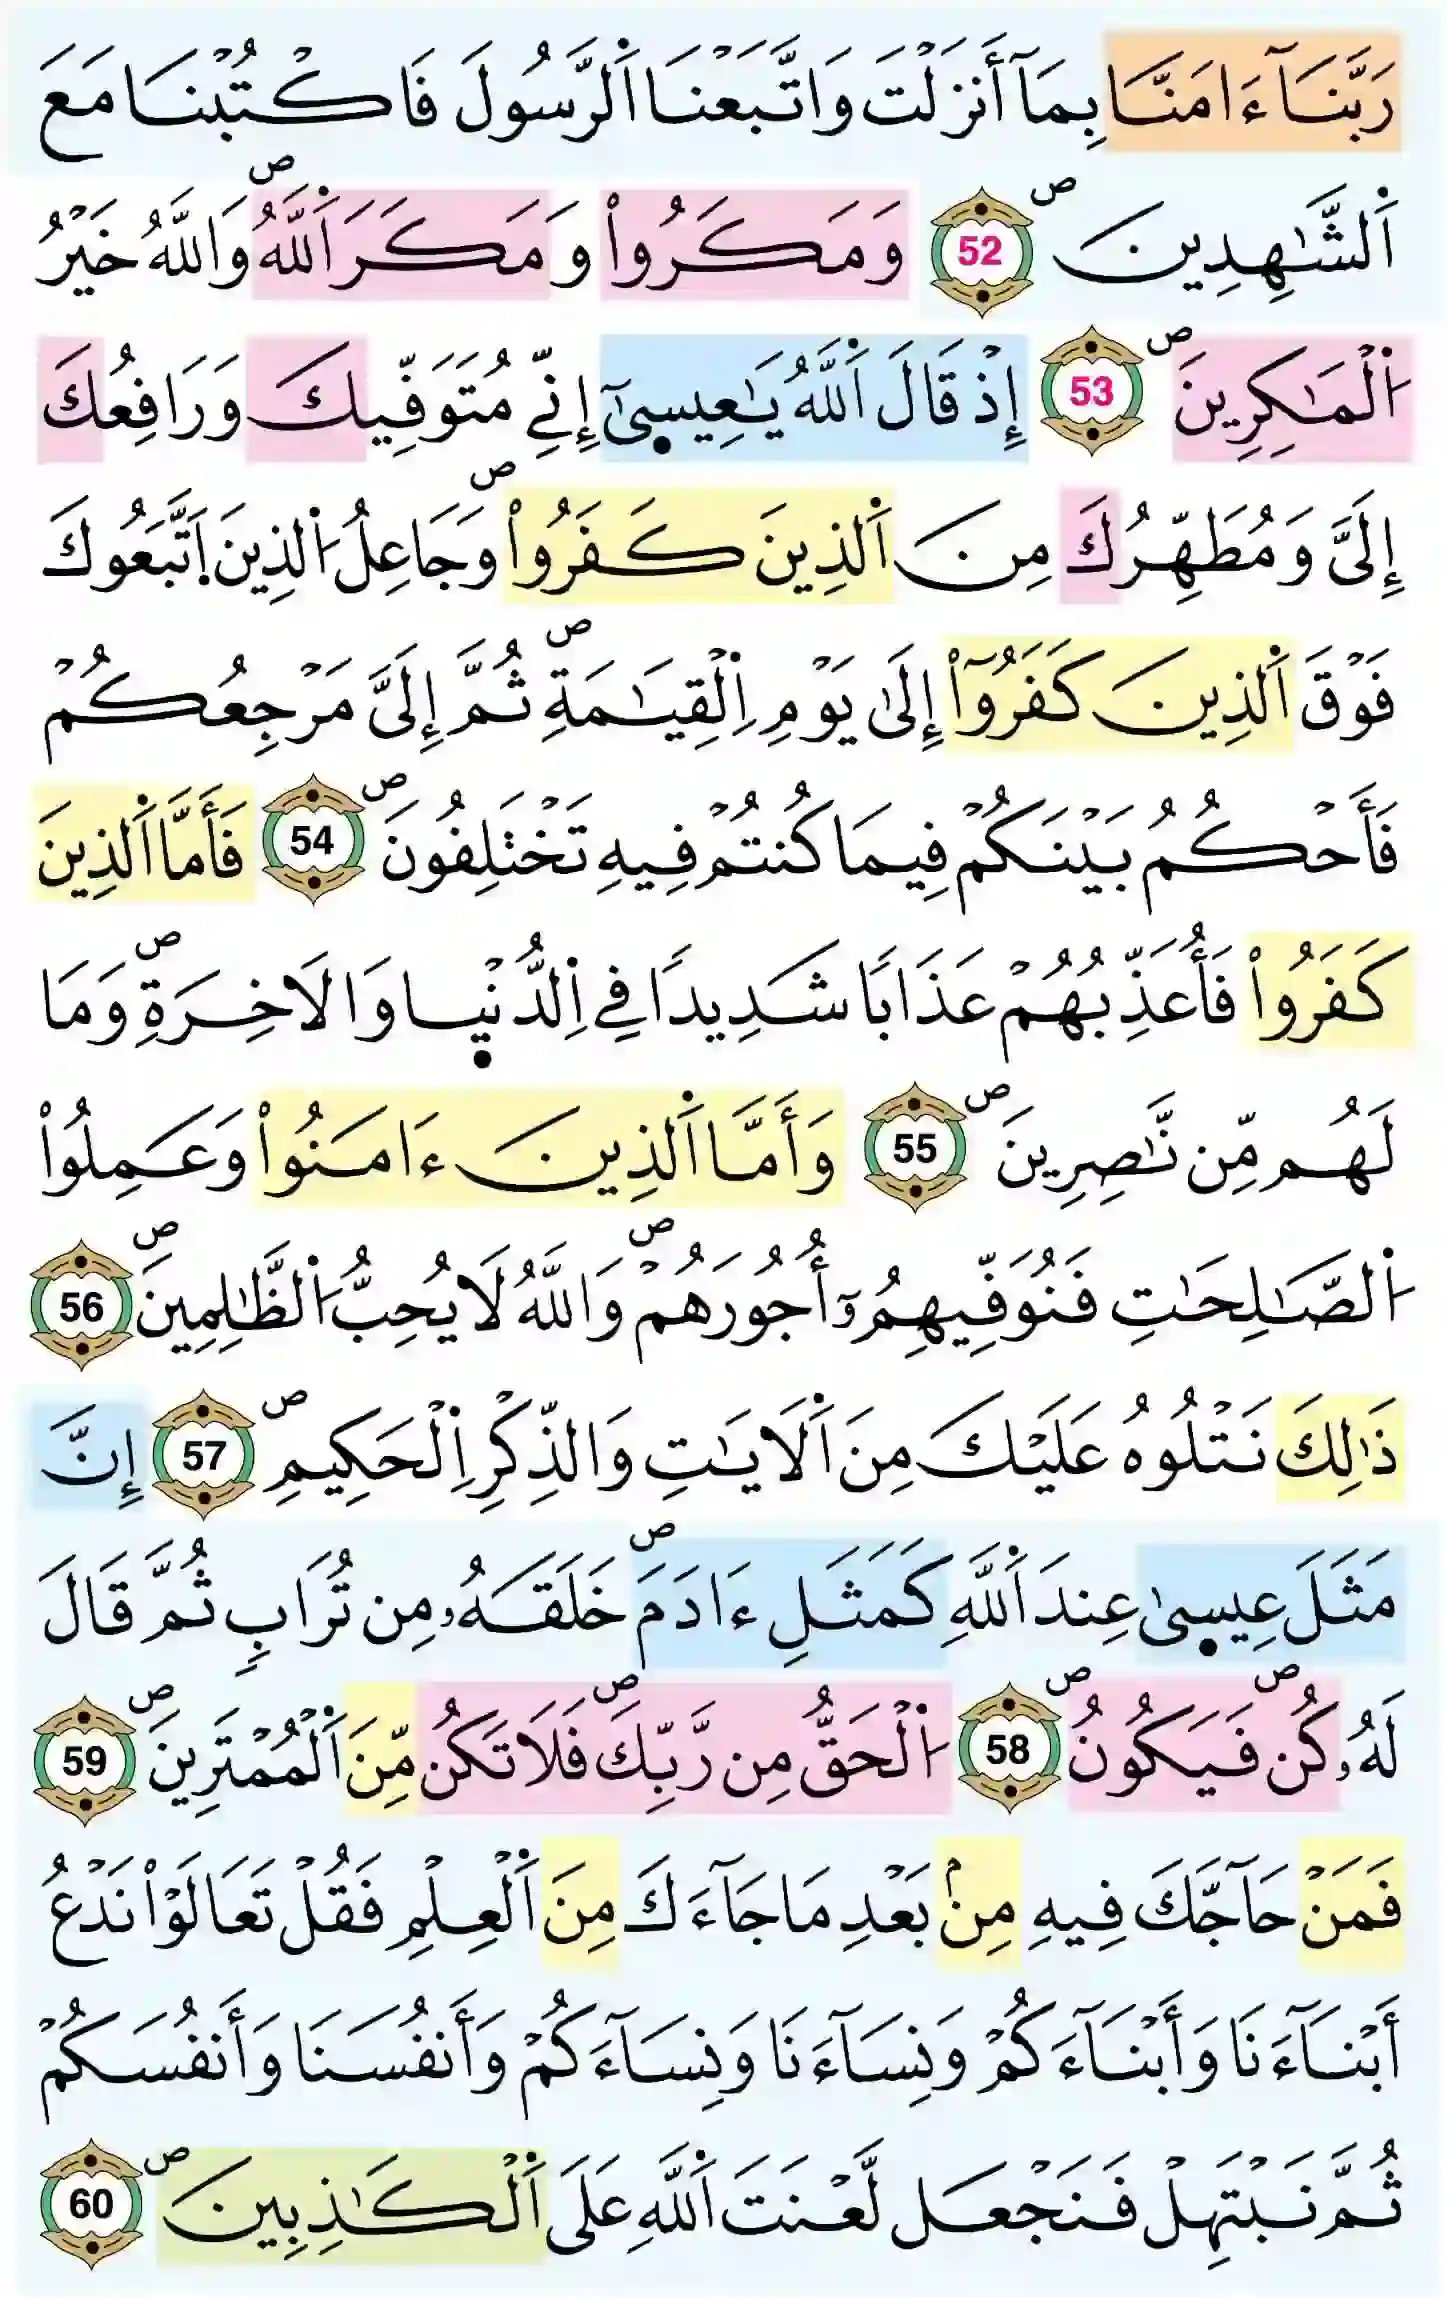 رَبَّنَآ ءَامَنَّا بِمَآ أَنزَلْتَ وَاتَّبَعْنَا اَلرَّسُولَ فَاكْتُبْنَا مَعَ
اَلشَّٰهِدِينَۖ 52 وَمَكَرُواْ وَمَكَرَ اَللَّهُۖ وَاللَّهُ خَيْرُ
اُ۬لْمَٰكِرِينَۖ 53 إِذْ قَالَ اَللَّهُ يَٰعِيسىٰٓ إِنِّے مُتَوَفِّيكَ وَرَافِعُكَ
إِلَىَّ وَمُطَهِّرُكَ مِنَ اَلذِينَ كَفَرُواْۖ وَجَاعِلُ اُ۬لذِينَ اَ۪تَّبَعُوكَ
فَوْقَ اَلذِينَ كَفَرُوٓاْ إِلَىٰ يَوْمِ اِ۬لْقِيَٰمَةِۖ ثُمَّ إِلَىَّ مَرْجِعُكُمْ
فَأَحْكُمُ بَيْنَكُمْ فِيمَا كُنتُمْ فِيهِ تَخْتَلِفُونَۖ 54 فَأَمَّا اَلذِينَ
كَفَرُواْ فَأُعَذِّبُهُمْ عَذَابًا شَدِيدًا فِے اِ۬لدُّنْيِا وَالَاخِرَةِۖ وَمَا
لَهُم مِّن نَّٰصِرِينَۖ 55 وَأَمَّا اَلذِينَ ءَامَنُواْ وَعَمِلُواْ
اُ۬لصَّٰلِحَٰتِ فَنُوَفِّيهِمُۥٓ أُجُورَهُمْۖ وَاللَّهُ لَا يُحِبُّ اُ۬لظَّٰلِمِينَۖ 56
ذَٰلِكَ نَتْلُوهُ عَلَيْكَ مِنَ اَلَايَٰتِ وَالذِّكْرِ اِ۬لْحَكِيمِۖ 57 إِنَّ
مَثَلَ عِيسىٰ عِندَ اَللَّهِ كَمَثَلِ ءَادَمَۖ خَلَقَهُۥ مِن تُرَابٖ ثُمَّ قَالَ
لَهُۥ كُنۖ فَيَكُونُۖ 58 اُ۬لْحَقُّ مِن رَّبِّكَۖ فَلَا تَكُن مِّنَ اَلْمُمْتَرِينَۖ 59
فَمَنْ حَآجَّكَ فِيهِ مِنۢ بَعْدِ مَا جَآءَكَ مِنَ اَلْعِلْمِ فَقُلْ تَعَالَوْاْ نَدْعُ
أَبْنَآءَنَا وَأَبْنَآءَكُمْ وَنِسَآءَنَا وَنِسَآءَكُمْ وَأَنفُسَنَا وَأَنفُسَكُمْ
ثُمَّ نَبْتَهِلْ فَنَجْعَل لَّعْنَتَ اَللَّهِ عَلَى اَلْكَٰذِبِينَۖ 60